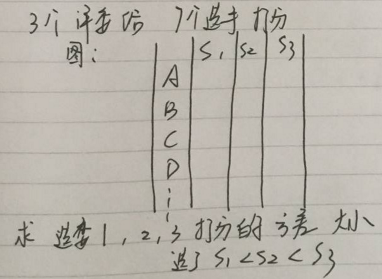 3个评委给 7个选手打分
图: S1 S2 S3
A
B
C
D
⋮
求 选委1,2,3 打分的方差大小
选了 S1<S2<S3